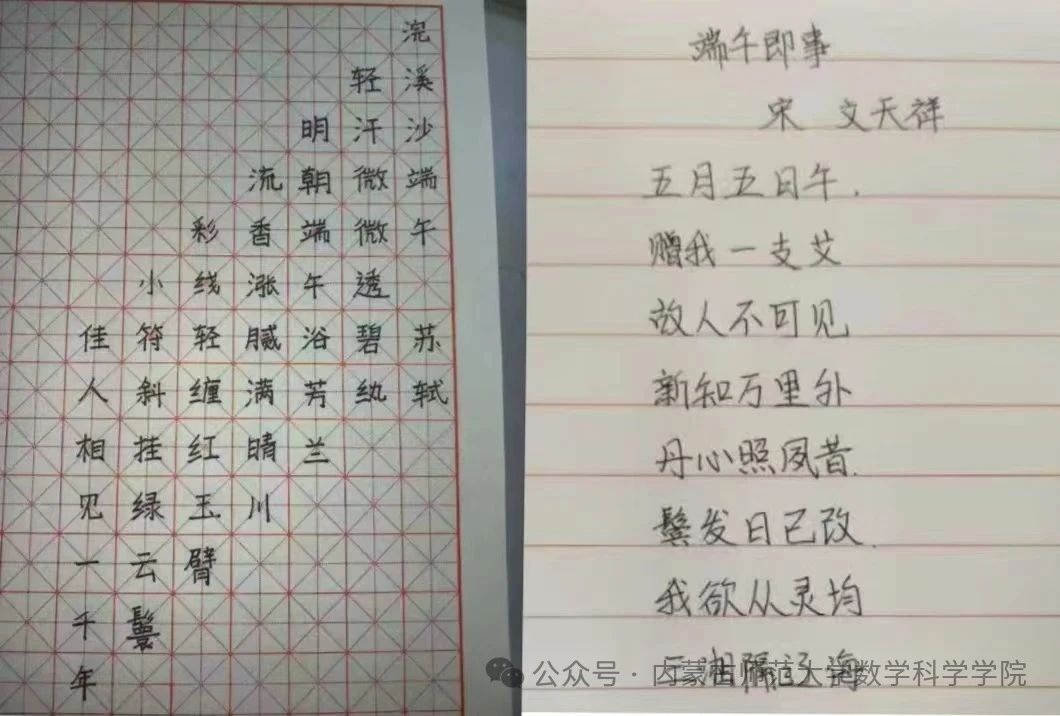 浣溪沙端午 苏轼
轻汗微微透碧纨
明朝端午浴芳兰
流香涨腻满晴川
彩线轻缠红玉臂
小符斜挂绿云鬟
佳人相见一千年
端午即事
宋 文天祥
五月五日午.
赠我一支艾
故人不可见
新知万里外
丹心照夙昔.
鬓发日已改.
我欲从灵均
三湘隔辽海
公众号·内蒙古师范大学数学科学学院